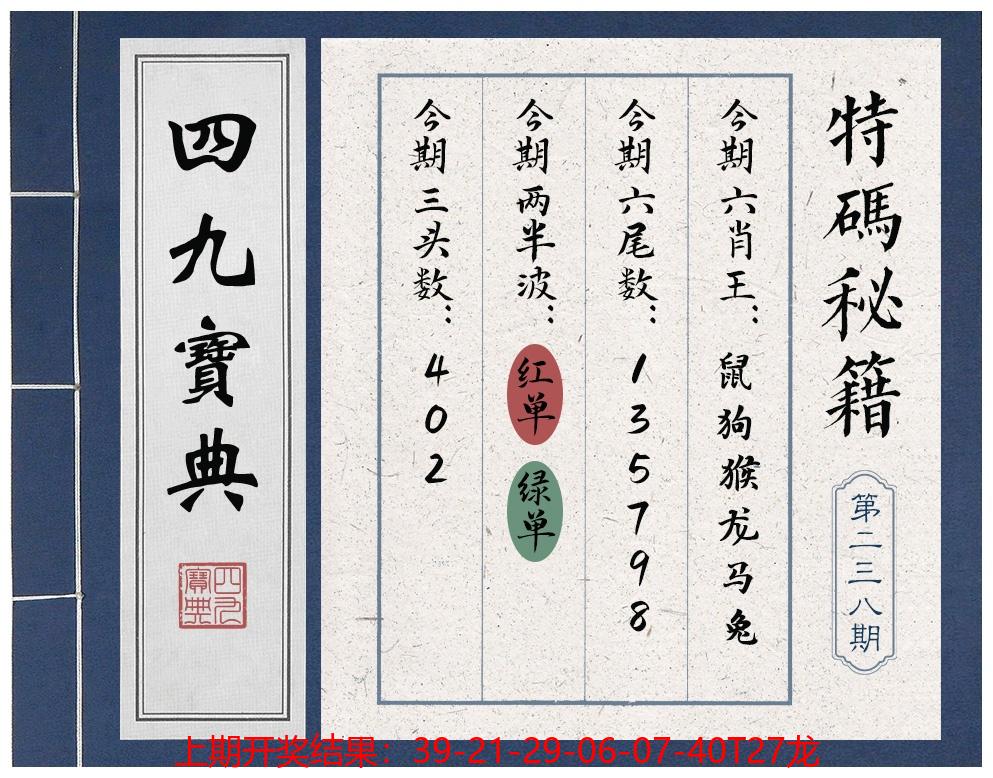 特碼秘籍
第二三八期
今期六肖王：鼠狗猴龙马兔
今期六尾数：135798
今期两半波：红单 绿单
今期三头数：402
四九寶典
四九寶典
上期开奖结果：39-21-29-06-07-40T27龙